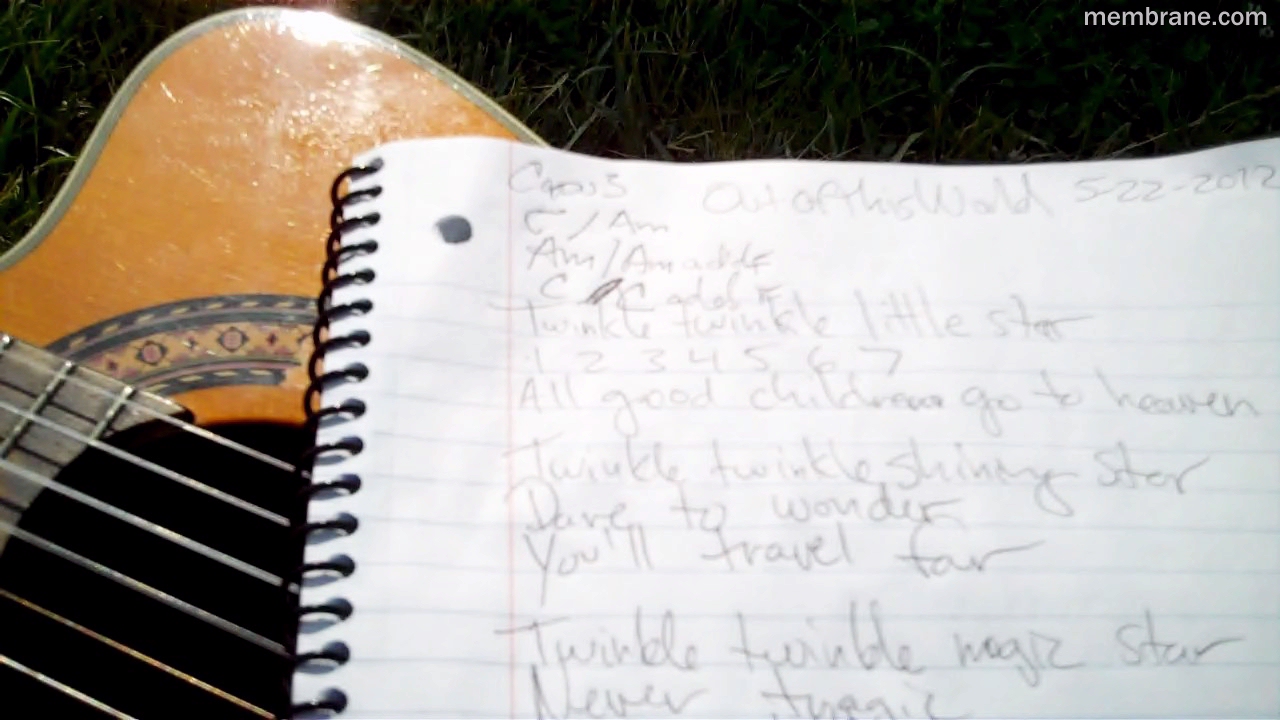 membrane.com
Capo 3 Out of This World 5-22-2012
C / Am
Am / Am add F
C / C add F
Twinkle twinkle little star
1 2 3 4 5 6 7
All good children go to heaven
Twinkle twinkle shining star
Dare to wonder
You'll travel far
Twinkle twinkle magic star
Never tragic